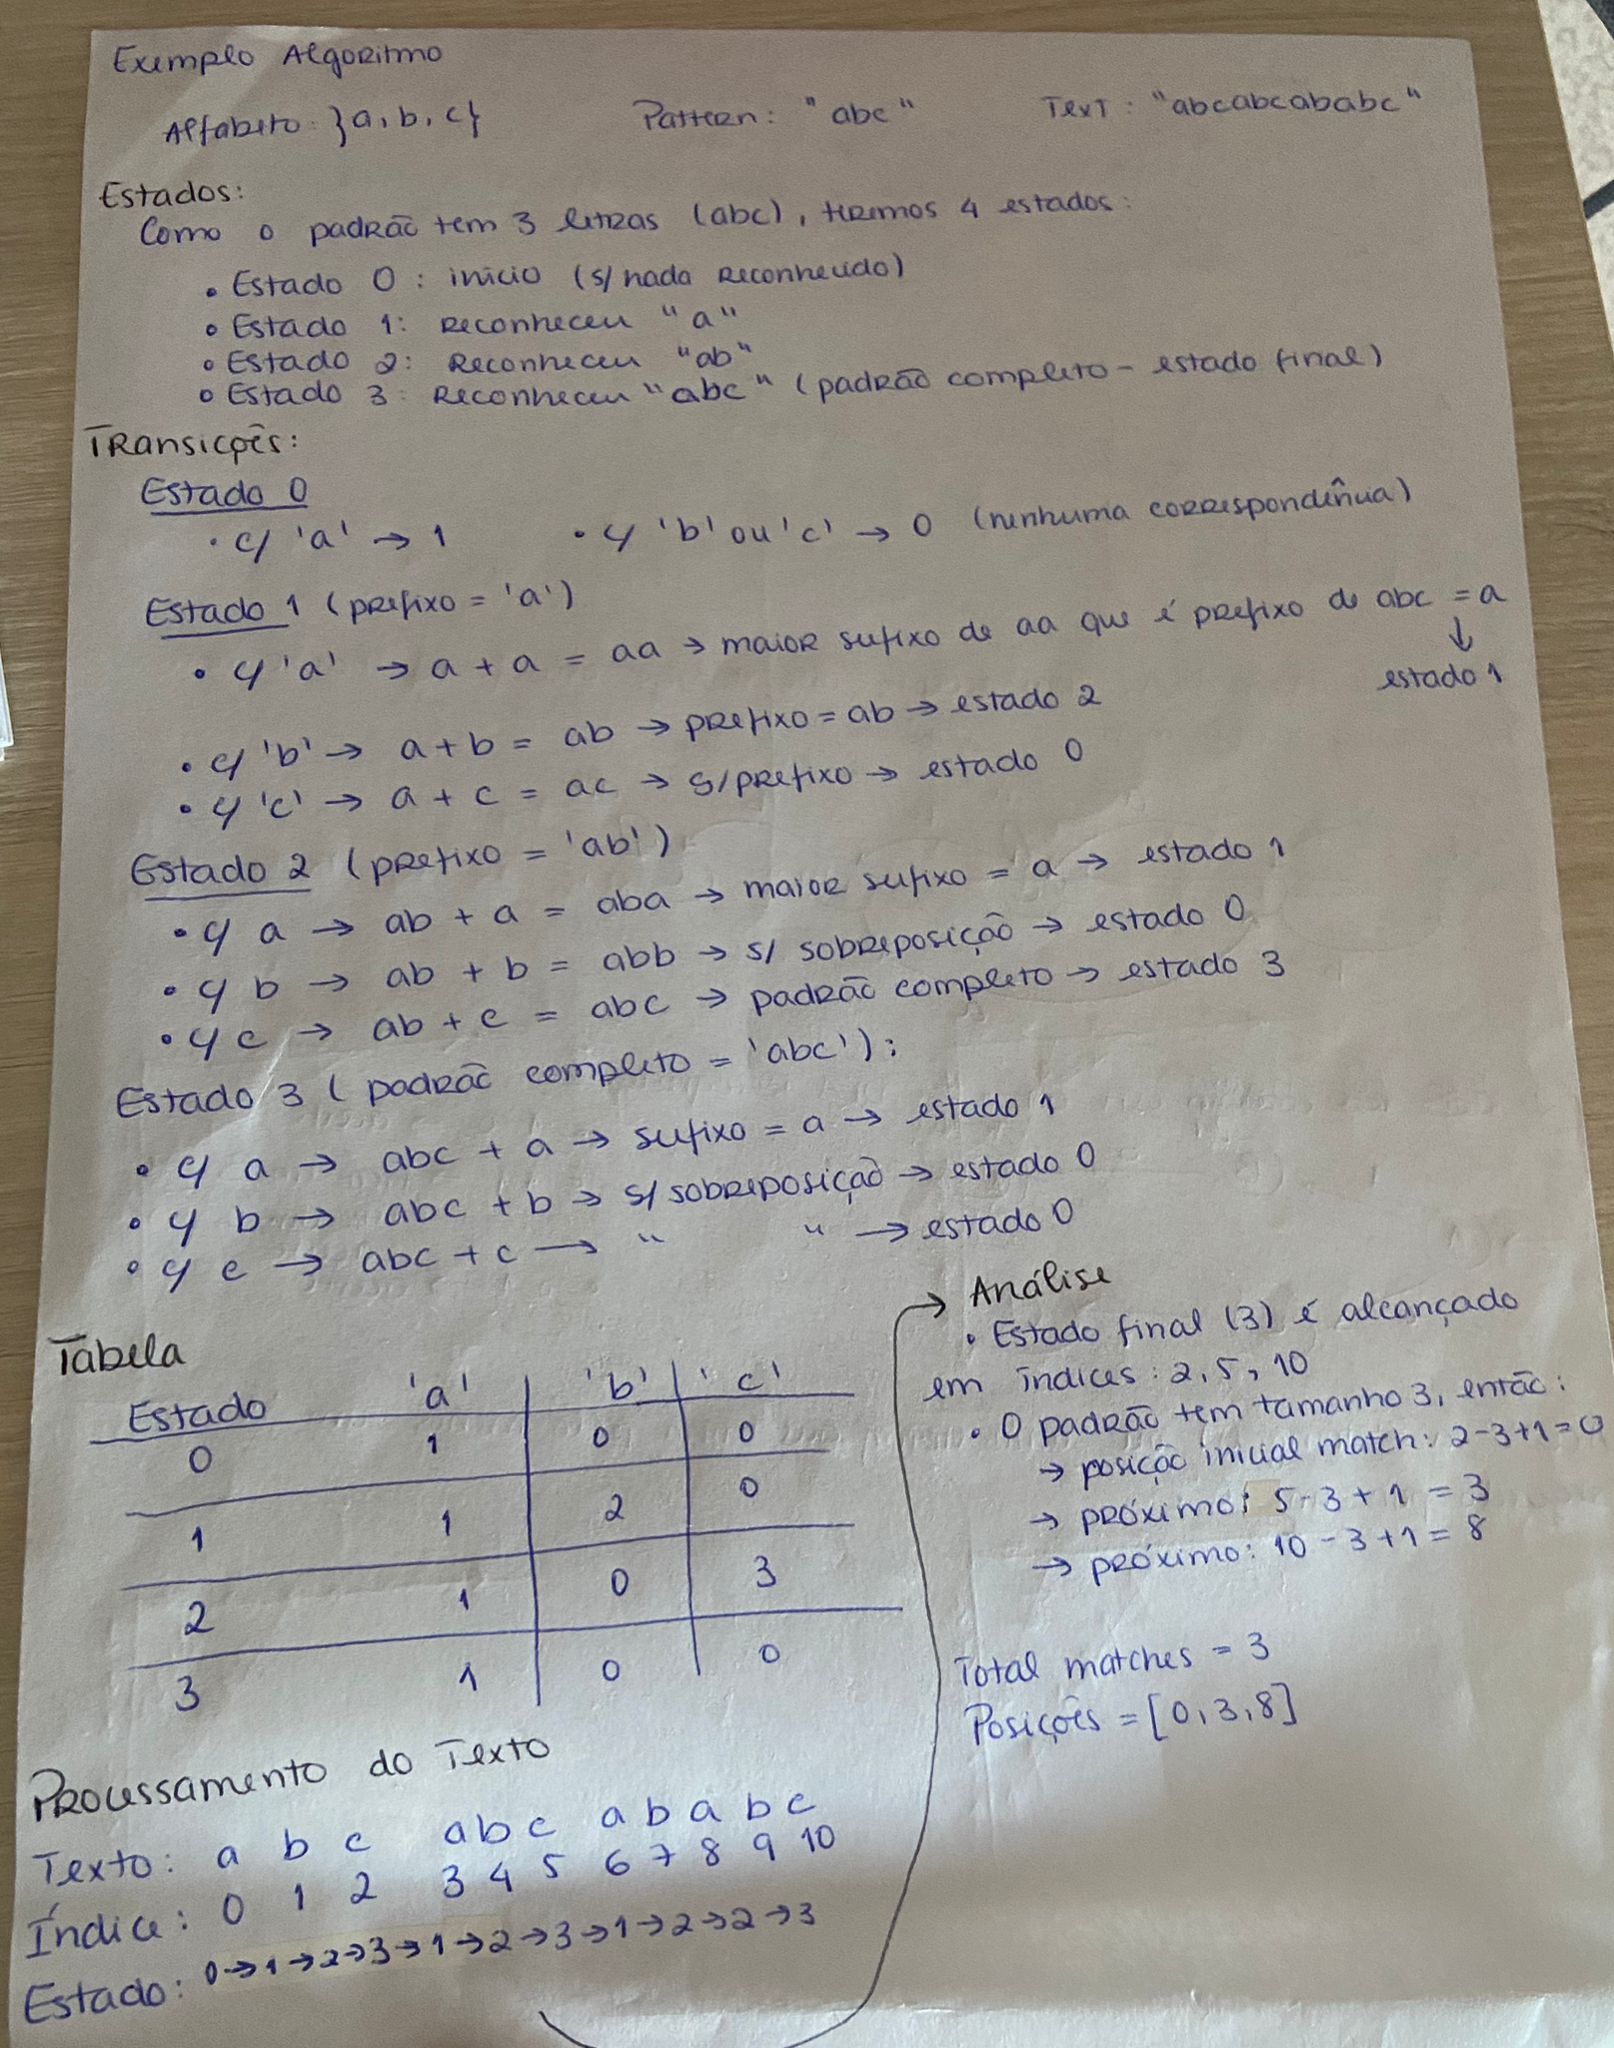 Exemplo Algoritmo
Alfabeto: }a, b, c{ Pattern: "abc" Text: "abcabcababc"
Estados:
Como o padrão tem 3 letras (abc), teremos 4 estados:
• Estado 0: início (s/ nada reconhecido)
• Estado 1: reconheceu "a"
• Estado 2: reconheceu "ab"
• Estado 3: reconheceu "abc" (padrão completo - estado final)
Transições:
Estado 0
• c/ 'a' → 1 • c/ 'b' ou 'c' → 0 (nenhuma correspondência)
Estado 1 (prefixo = 'a')
• c/ 'a' → a + a = aa → maior sufixo de aa que é prefixo de abc = a
↓
estado 1
• c/ 'b' → a + b = ab → prefixo = ab → estado 2
• c/ 'c' → a + c = ac → s/ prefixo → estado 0
Estado 2 (prefixo = 'ab')
• c/ a → ab + a = aba → maior sufixo = a → estado 1
• c/ b → ab + b = abb → s/ sobreposição → estado 0
• c/ c → ab + c = abc → padrão completo → estado 3
Estado 3 (padrão completo = 'abc'):
• c/ a → abc + a → sufixo = a → estado 1
• c/ b → abc + b → s/ sobreposição → estado 0
• c/ c → abc + c → " " → estado 0
Tabela
Estado 'a' 'b' 'c'
0 1 0 0
1 1 2 0
2 1 0 3
3 1 0 0
Processamento do Texto
Texto: a b c a b c a b a b c
Índice: 0 1 2 3 4 5 6 7 8 9 10
Estado: 0→1→2→3→1→2→3→1→2→2→3
→ Análise
• Estado final (3) é alcançado
em índices: 2, 5, 10
• O padrão tem tamanho 3, então:
→ posição inicial match: 2-3+1=0
→ próximo: 5-3+1 = 3
→ próximo: 10-3+1 = 8
Total matches = 3
Posições = [0,3,8]